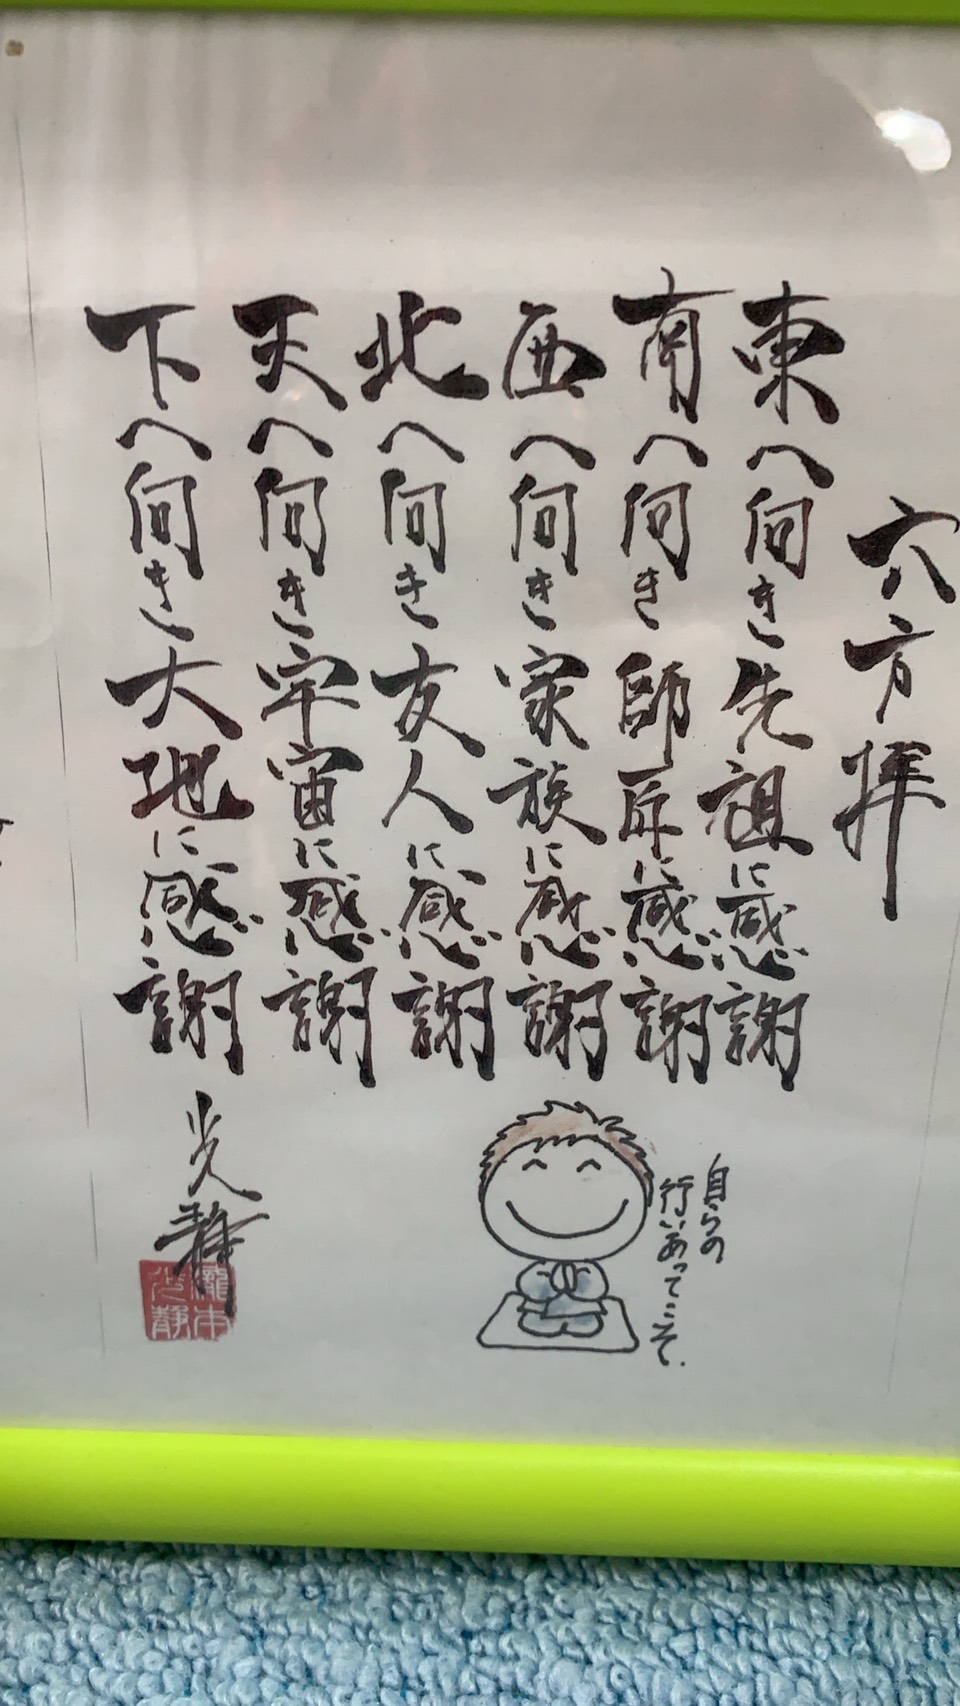 六方拝
東へ向き先祖に感謝
南へ向き師匠に感謝
西へ向き家族に感謝
北へ向き友人に感謝
天へ向き宇宙に感謝
下へ向き大地に感謝
光静
瀧本
光静
自らの
行いあってこそ.